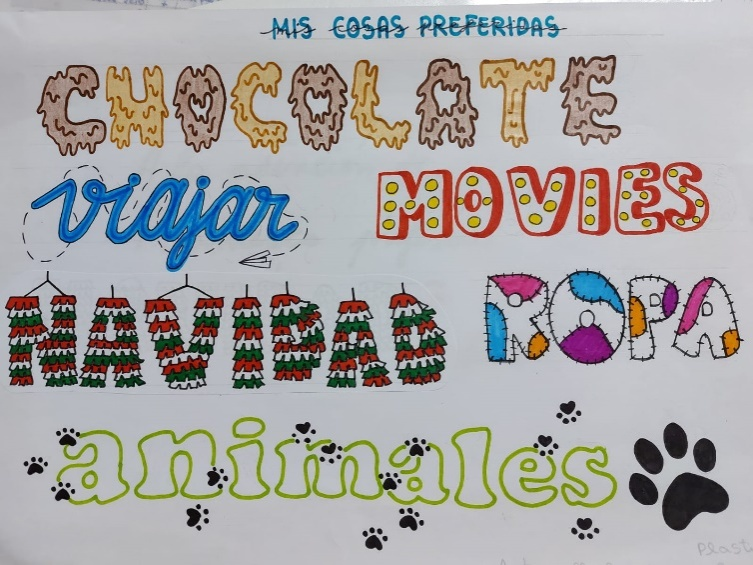 MIS COSAS PREFERIDAS
CHOCOLATE
viajar MOVIES
NAVIDAD ROPA
animales